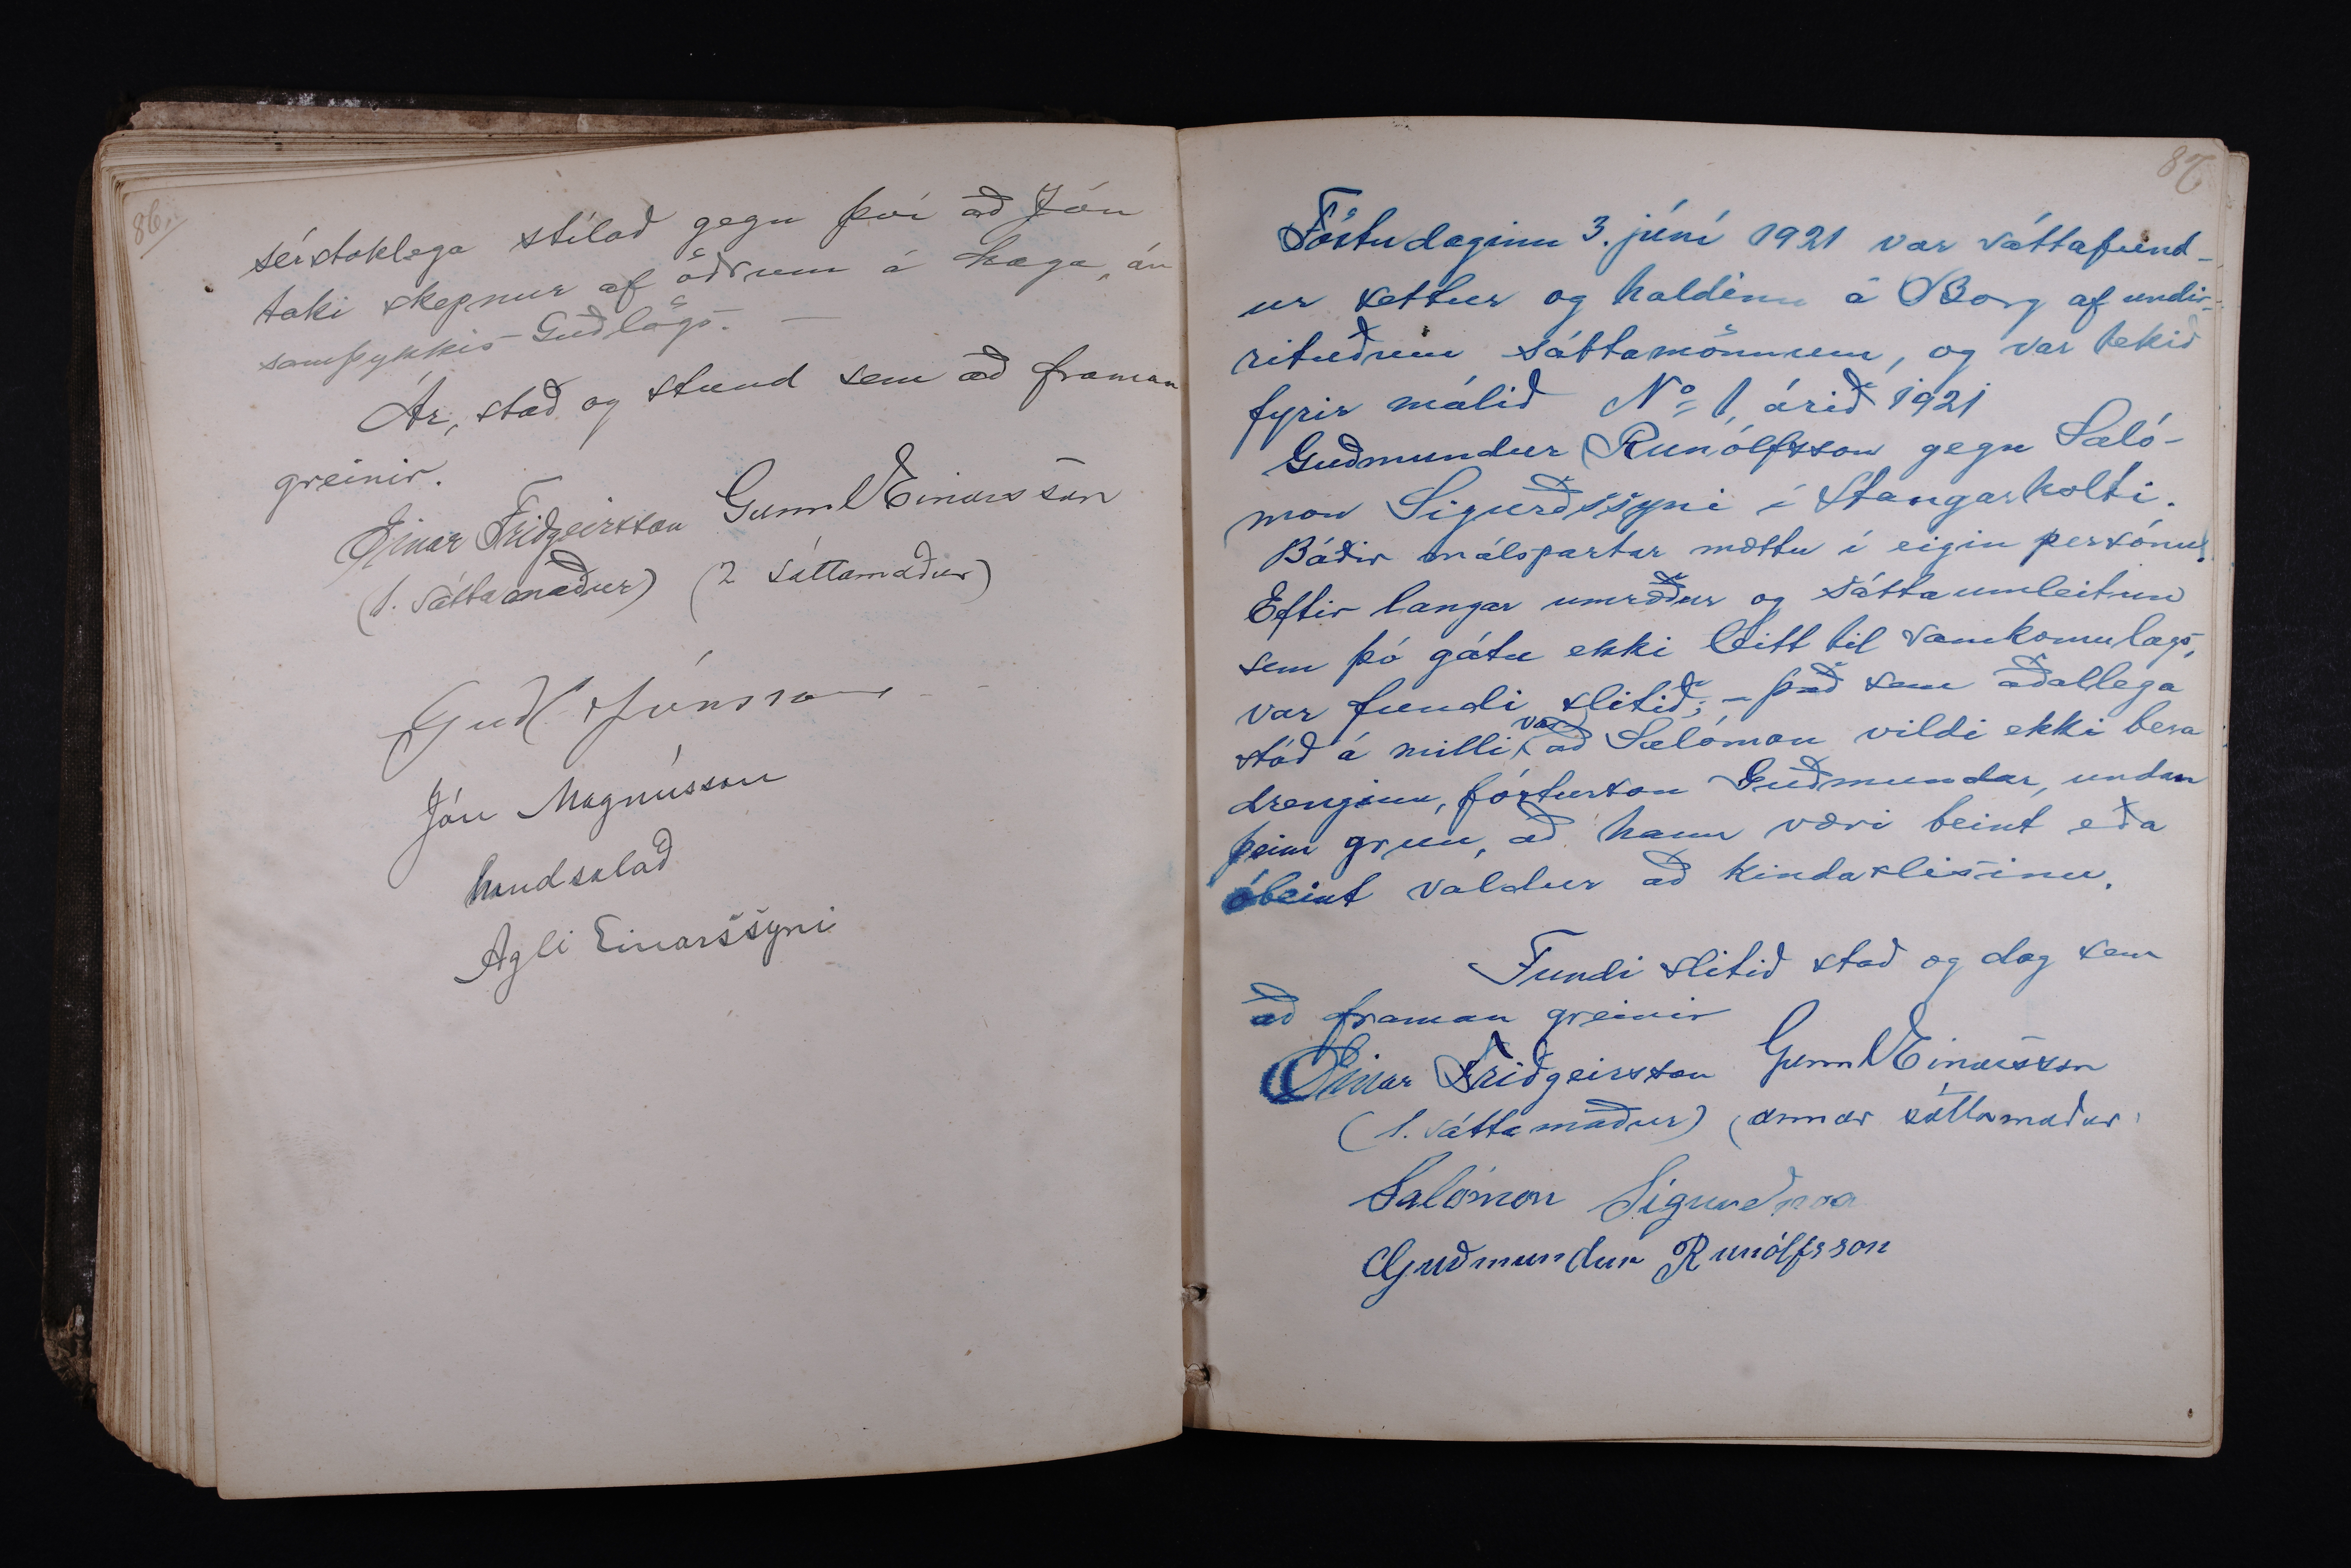 86.
sérstaklega stílað gegn því að Jón
taki skepnur af öðrum á haga, án
samþykkis Guðlögs. —
Ár, stað og stund sem að framan
greinir.
Einar Friðgeirsson Gunnl Einarsson
(1. sáttamaður) (2 sáttamaður)
Guðl Jónsson
Jón Magnússon
handsalað
Agli Einarssyni
87
Föstudaginn 3. júní 1921 var sáttafund-
ur settur og haldinn á Borg af undir-
rituðum sáttamönnum, og var tekið
fyrir málið No 1, árið 1921
Guðmundur Runólfsson gegn Saló-
mon Sigurðssyni í Stangarholti.
Báðir málspartar mættu í eigin persónu.
Eftir langar umræður og sáttaumleitun
sem þó gátu ekki leitt til samkomulags,
var fundi slitið; – það sem aðallega
stóð á milli var að Salómon vildi ekki bera
drenginn, fósturson Guðmundar, undan
þeim grun, að hann væri beint eða
óbeint valdur að kindaslisinu.
Fundi slitið stað og dag sem
að framan greinir
Einar Friðgeirsson Gunnl Einarsson
(1. sáttamaður) (annar sáttamaður
Salómon Sigurðsson
Guðmundur Runólfsson